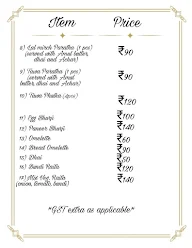 Item Price
8) Lal mirch Paratha (1 pcs) ₹90
(served with Amul butter,
dhai and Achar)
9) Tawa Paratha (1 pcs) ₹90
(served with Amul butter,
dhai and Achar)
10) Tawa Phulka (4pcs) ₹120
11) Egg Bhurji ₹100
12) Paneer Bhurji ₹140
13) Omelette ₹60
14) Bread Omelette ₹90
15) Dhai ₹50
16) Bundi Raita ₹120
17) Mix Veg. Raita ₹140
(onion, tomato, kheera)
*GST extra as applicable*